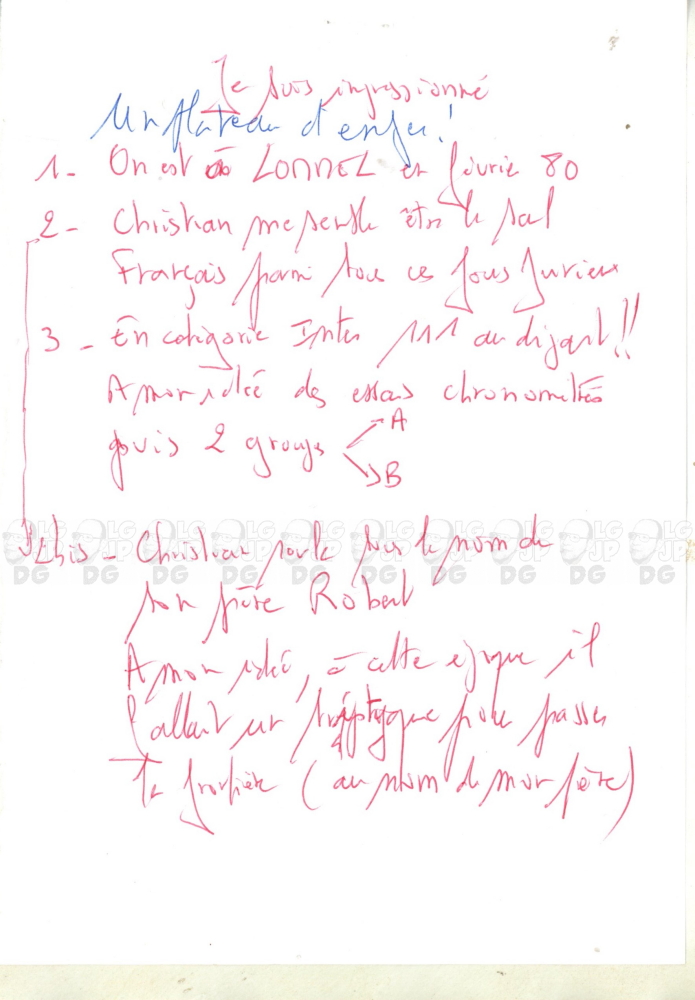 Je suis impressionné
Un plateau d'enfer!
1- On est à LOMMEL en février 80
2- Christian me semble être le seul
Français parmi tous ces fous furieux
3- En catégorie Inter 111 au départ!!
A mon idée des essais chronométrés
puis 2 groups A
B
2bis - Christian roule sous le nom de
son père Robert
A mon idée, à cette époque il
fallait un triptyque pour passer
la frontière (au nom de mon père)
LG JP DG LG JP DG LG JP DG LG JP DG LG JP DG